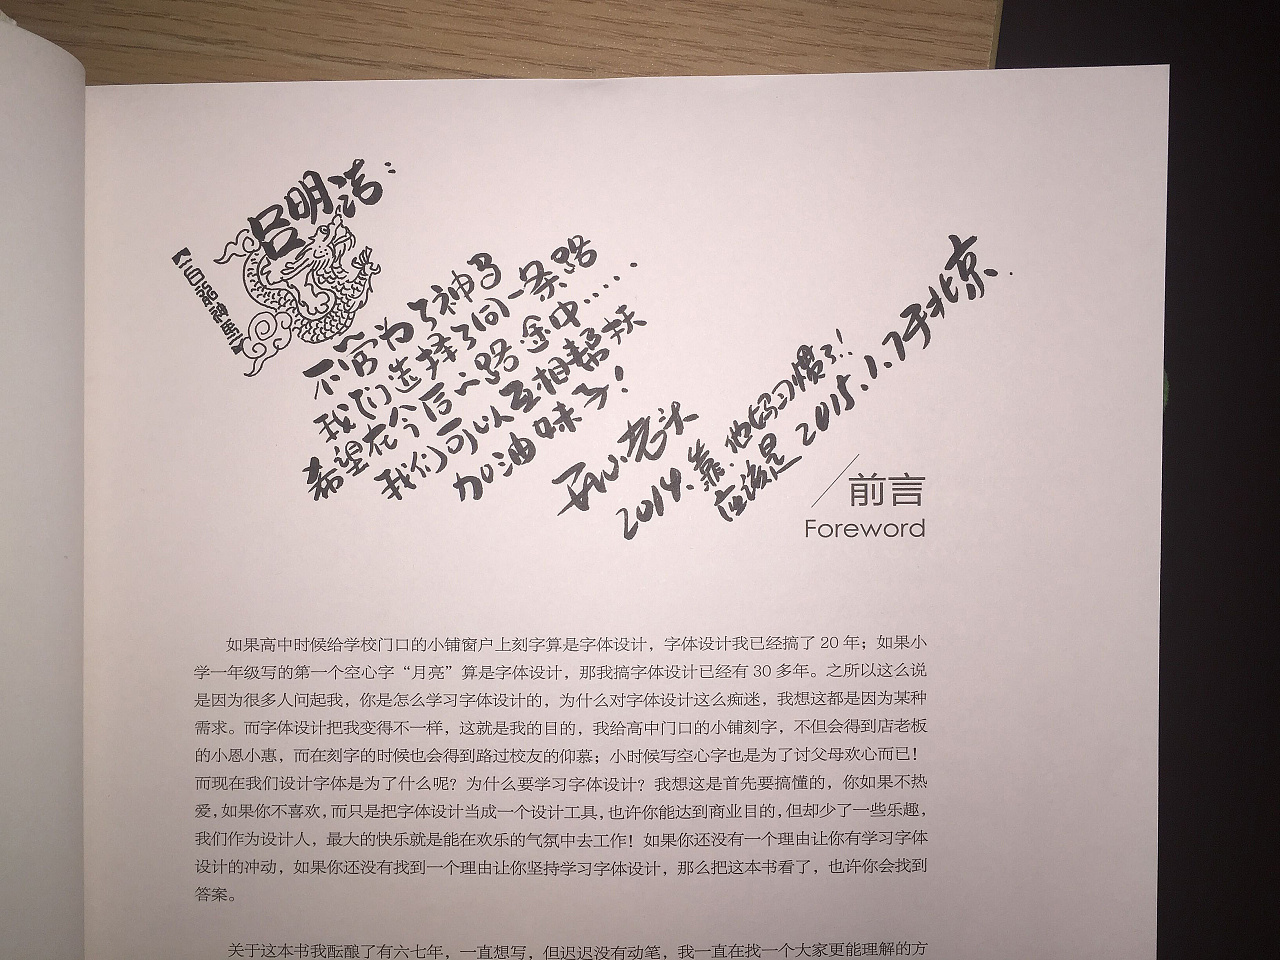 吕明洁：
不管为了神马
我们选择了同一条路
希望在今后的路途中……
我们可以互相帮扶
加油妹子！
老头
2014.靠.他妈习惯了！
应该是2015.1.7于北京.
前言
Foreword
如果高中时候给学校门口的小铺窗户上刻字算是字体设计，字体设计我已经搞了 20 年；如果小
学一年级写的第一个空心字“月亮”算是字体设计，那我搞字体设计已经有 30 多年。之所以这么说
是因为很多人问起我，你是怎么学习字体设计的，为什么对字体设计这么痴迷，我想这都是因为某种
需求。而字体设计把我变得不一样，这就是我的目的，我给高中门口的小铺刻字，不但会得到店老板
的小恩小惠，而在刻字的时候也会得到路过校友的仰慕；小时候写空心字也是为了讨父母欢心而已！
而现在我们设计字体是为了什么呢？为什么要学习字体设计？我想这是首先要搞懂的，你如果不热
爱，如果你不喜欢，而只是把字体设计当成一个设计工具，也许你能达到商业目的，但却少了一些乐趣，
我们作为设计人，最大的快乐就是能在欢乐的气氛中去工作！如果你还没有一个理由让你有学习字体
设计的冲动，如果你还没有找到一个理由让你坚持学习字体设计，那么把这本书看了，也许你会找到
答案。
关于这本书我酝酿了有六七年，一直想写，但迟迟没有动笔，我一直在找一个大家更能理解的方